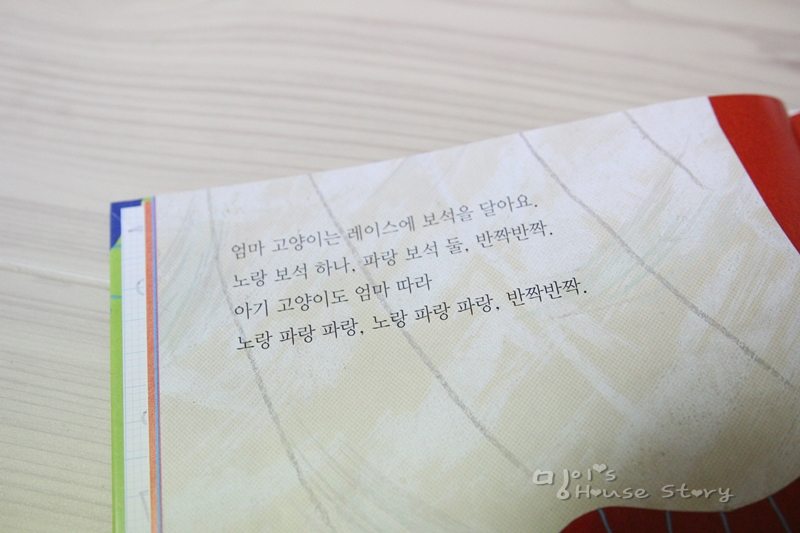 엄마 고양이는 레이스에 보석을 달아요.
노랑 보석 하나, 파랑 보석 둘, 반짝반짝.
아기 고양이도 엄마 따라
노랑 파랑 파랑, 노랑 파랑 파랑, 반짝반짝.
밍이's
House Story